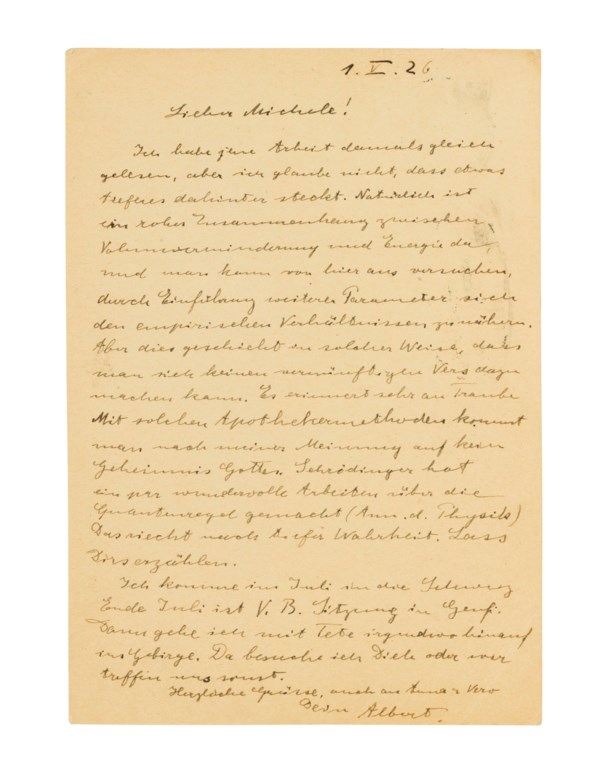 1. V. 26
Lieber Michele!
Ich habe jene Arbeit damals gleich
gelesen, aber ich glaube nicht, dass etwas
tieferes dahinter steckt. Natürlich ist
ein roher Zusammenhang zwischen
Volumverminderung und Energie da,
und man kann von hier aus versuchen,
durch Einführung weiterer Parameter sich
den empirischen Verhältnissen zu nähern.
Aber dies geschieht in solcher Weise, dass
man sich keinen vernünftigen Vers dazu
machen kann. Es erinnert sehr an Traube
Mit solchen Apothekermethoden kommt
man nach meiner Meinung auf kein
Geheimnis Gottes. Schrödinger hat
ein par wundervolle Arbeiten über die
Quantenregel gemacht (Ann. d. Physik)
Das riecht nach tiefer Wahrheit. Lass
Dirs erzählen.
Ich komme im Juli in die Schweiz
Ende Juli ist V. B. Sitzung in Genf.
Dann gehe ich mit Tete irgendwo hinauf
ins Gebirge. Da besuche ich Dich oder wir
treffen uns sonst.
Herzliche Grüsse, auch an Anna & Vero
Dein Albert.